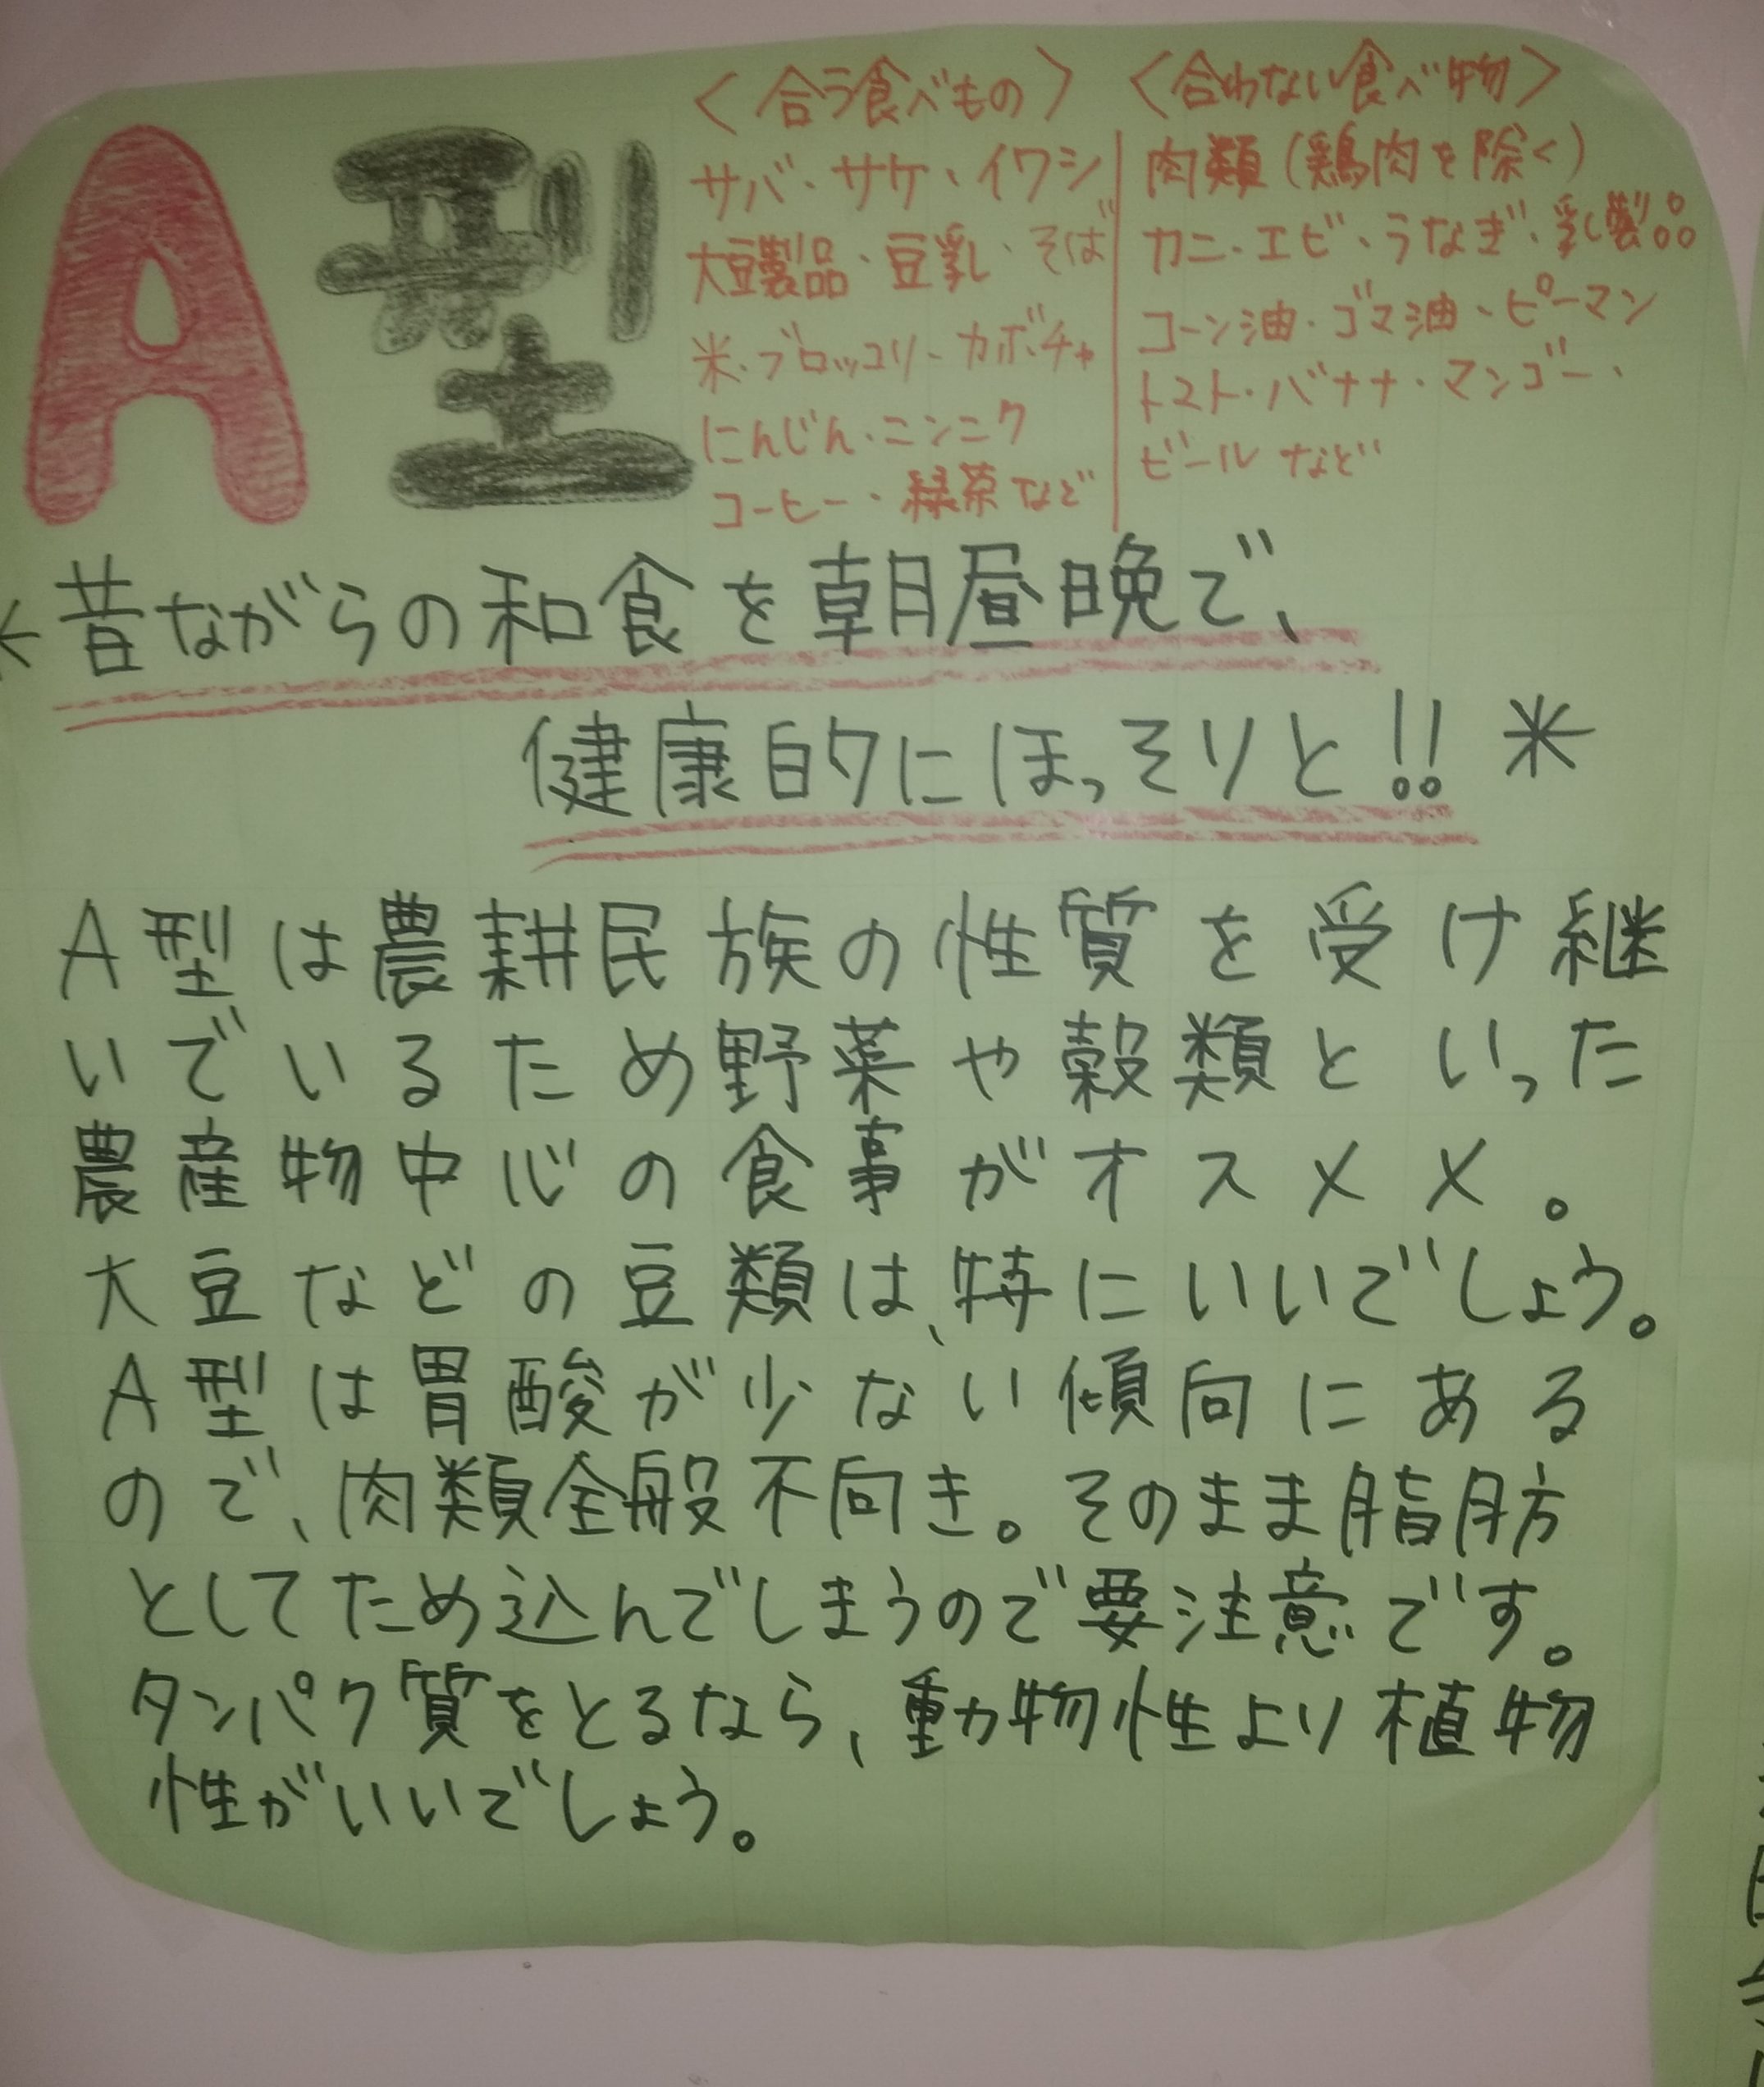 A型
＜合う食べもの＞
サバ・サケ・イワシ
大豆製品・豆乳・そば
米・ブロッコリー・カボチャ
にんじん・ニンニク
コーヒー・緑茶など
＜合わない食べ物＞
肉類(鶏肉を除く)
カニ・エビ・うなぎ・乳製品
コーン油・ゴマ油・ピーマン
トマト・バナナ・マンゴー・
ビールなど
＊昔ながらの和食を朝昼晩で、
健康的にほっそりと!!＊
A型は農耕民族の性質を受け継
いでいるため野菜や穀類といった
農産物中心の食事がオススメ。
大豆などの豆類は、特にいいでしょう。
A型は胃酸が少ない傾向にある
ので、肉類全般不向き。そのまま脂肪
としてため込んでしまうので要注意です。
タンパク質をとるなら、動物性より植物
性がいいでしょう。